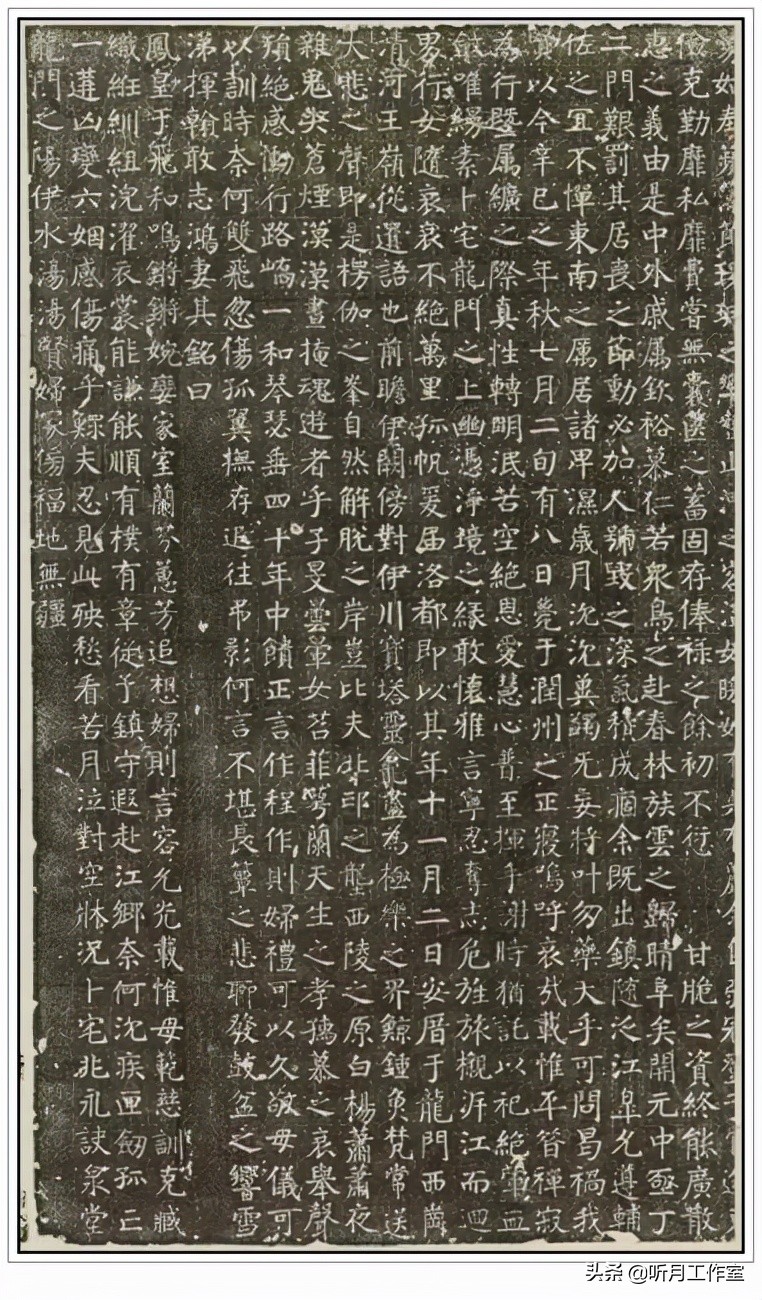 儉克勤靡私靡費嘗無囊篋之蓄固存俸祿之餘初不衍甘脆之資終能廣散
惠之義由是中外戚属欽裕慕仁若衆鳥之赴春林族雲之歸晴阜矣開元中亟丁
二門艱罰其居喪之節動必加人號毀之深氣積成痼余既出鎮隨泛江皋允遵輔
佐之宜不憚東南之厲居諸卑濕歲月沉沉冀蠲无妄將叶勿藥大乎可問曷禍我
以今辛巳之年秋七月二旬有八日薨于潤州之正寢嗚呼哀哉載惟平昔禪寂
為行暨属纊之際真性轉明泯苦空絕恩愛慧心普至揮手謝時猶託以祀絕葷血
斂唯縵素卜宅龍門之上幽憑淨境之緣敢懷雅言寧忍奪志危旌旅櫬泝江而迴
男行女隨哀哀不絕萬里孤帆爰届洛都即以其年十一月二日安厝于龍門西崗
清河王嶺從遷語也前瞻伊闕傍對伊川寶塔靈龕盡為極樂之界鯨鍾魚梵常送
大悲之聲即是楞伽之峯自然解脫之岸豈比夫北邙之壟西陵之原白楊蕭蕭夜
雜鬼哭蒼煙漠漠晝掩魂遊者乎子旻曇暈女苕菲蕚蘭天生之孝孺慕之哀舉聲
殞絕感慟行路嶠一和琴瑟垂四十年中饋正言作程作則婦禮可以久敬母儀可
以訓時奈何雙飛忽傷孤翼撫存追往弔影何言不堪長簟之悲聊發鼓盆之響雪
涕揮翰敢志鴻妻其銘曰
鳳皇于飛和鳴鏘鏘婉孌家室蘭芬蕙芳追想婦則言容允光載惟母範慈訓克臧
織紝紃組浣濯衣裳能謙能順有樸有章從予鎮守遐赴江鄉奈何沉疾匣劒孤亡
一遘凶變六姻感傷痛乎鰥夫忍見此殃愁看苦月泣對空牀況卜宅兆永訣泉堂
龍門之陽伊水湯湯賢婦冢傷福地無疆
头条 @听月工作室